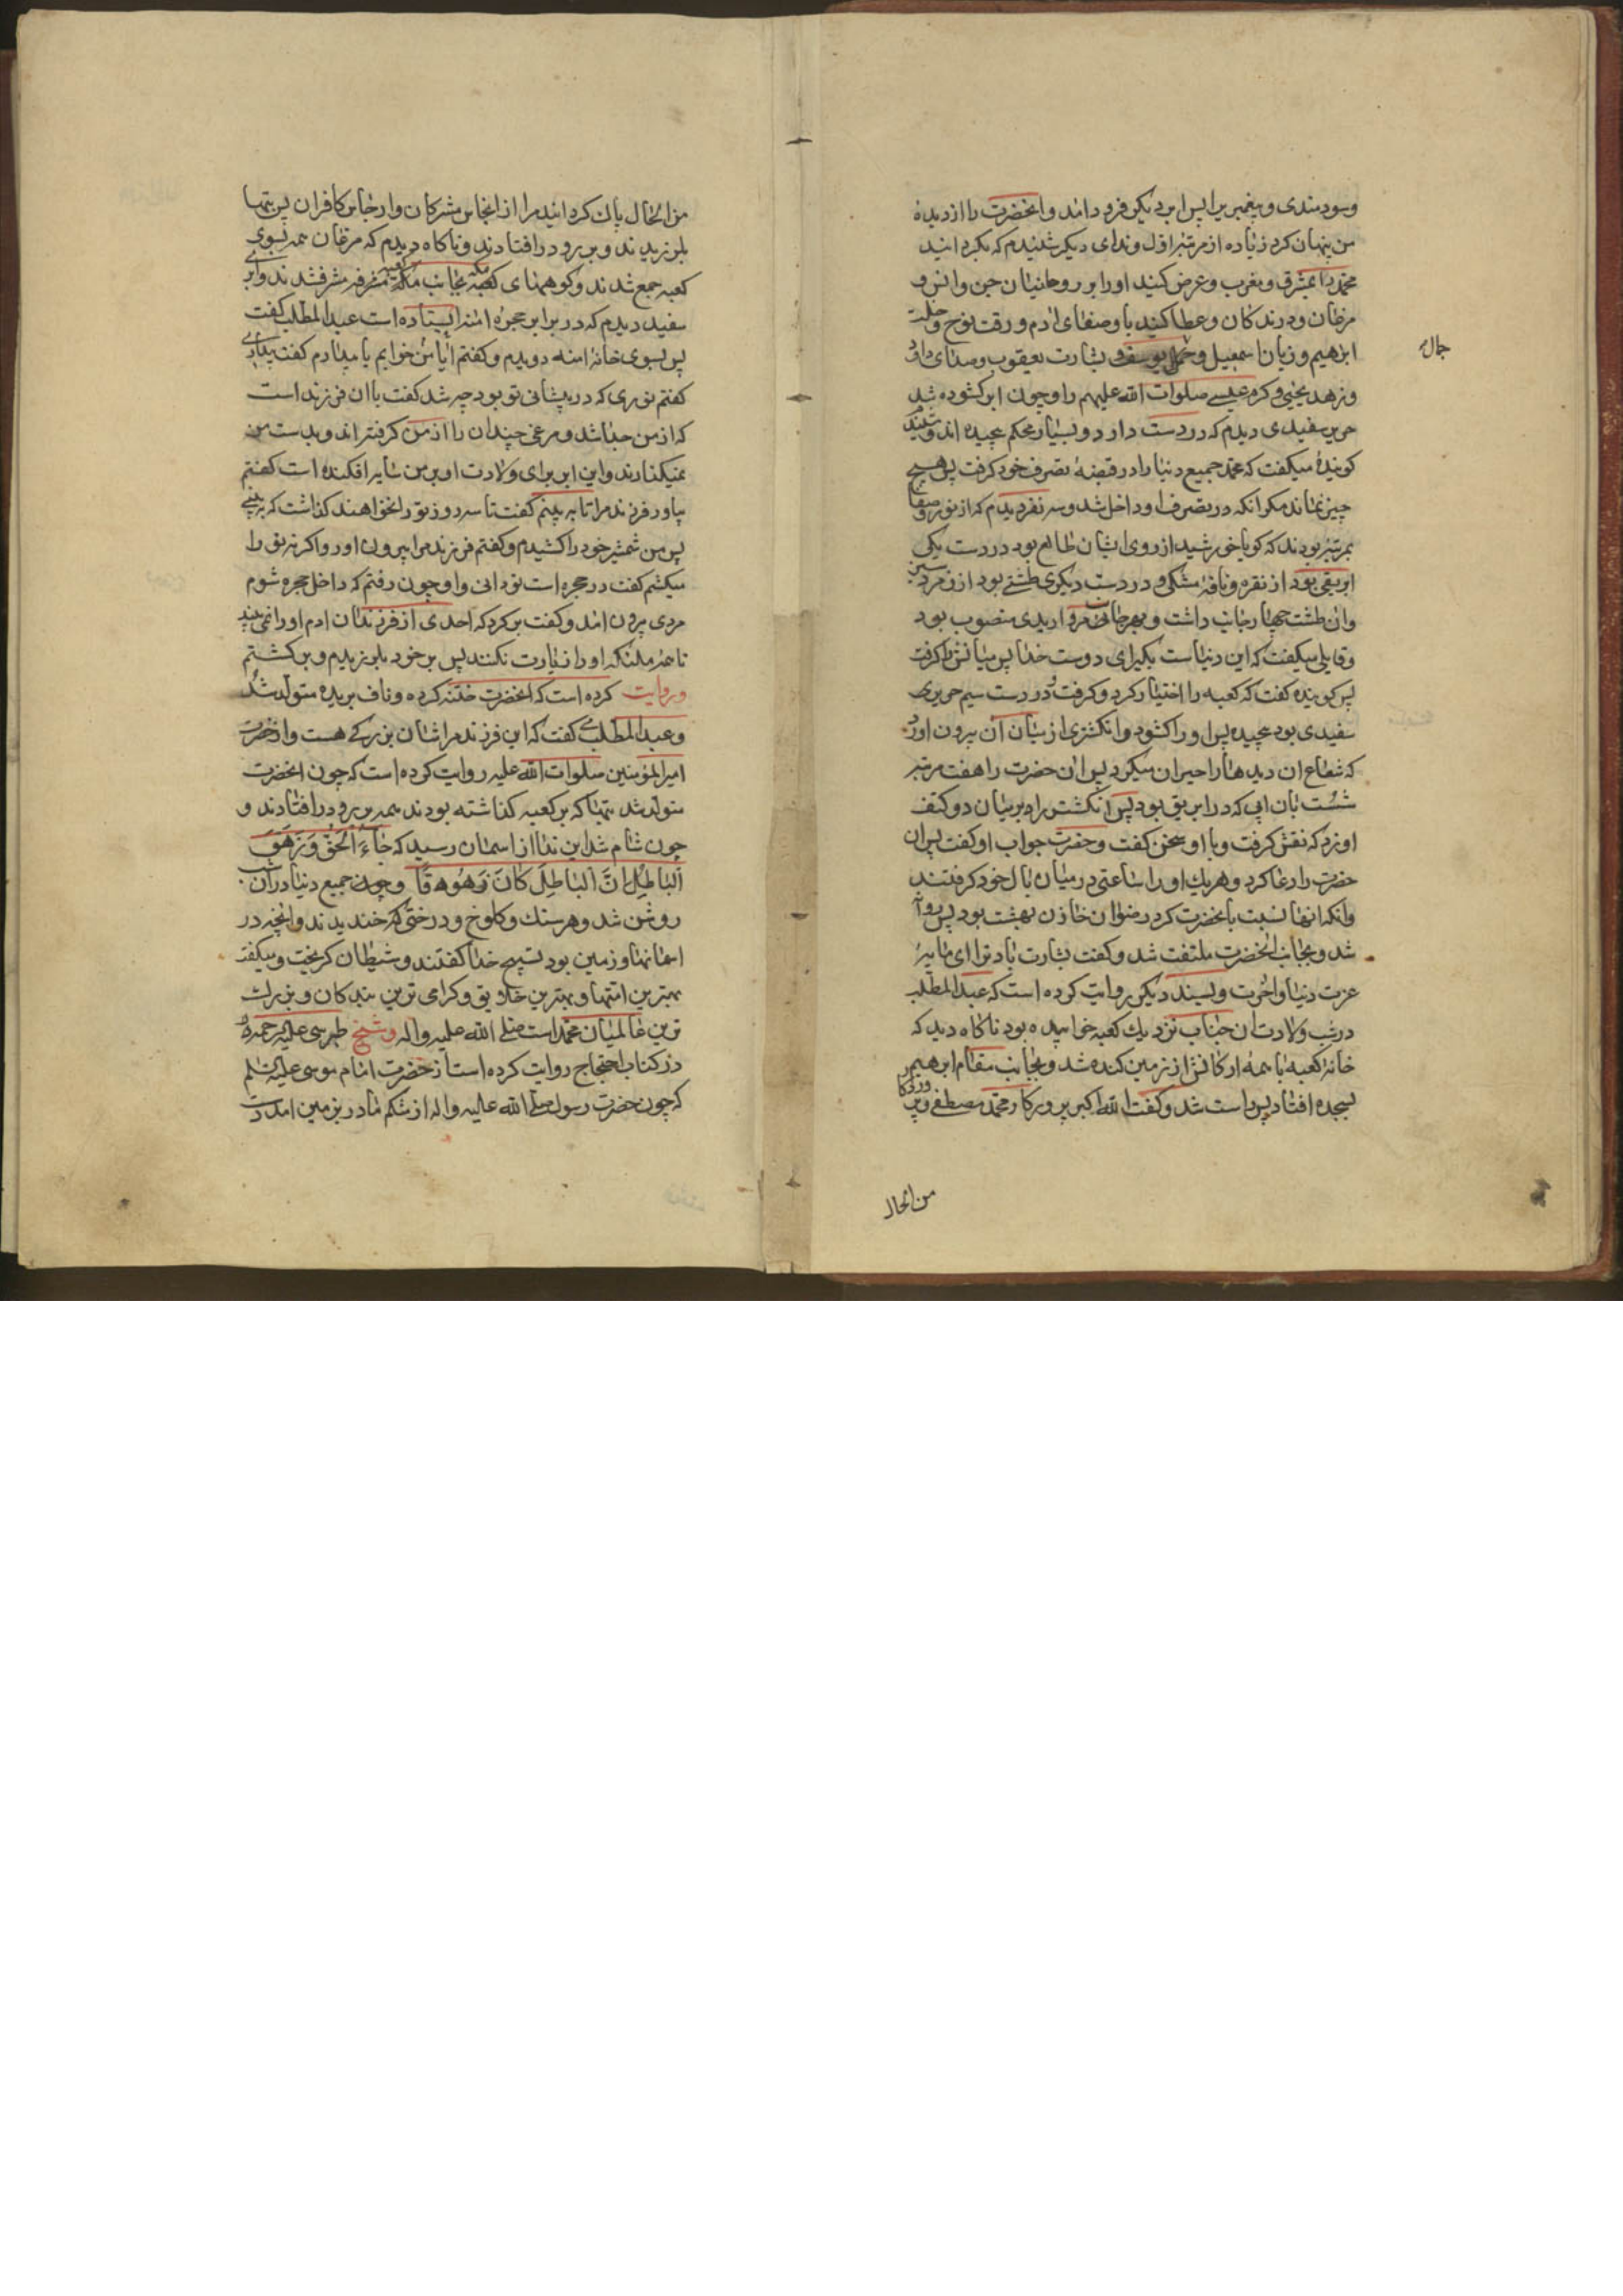 و سودمندی و پیغمبری پس ابر دیگر فرود آمد و آنحضرت را از دیدهٔ
من پنهان کرد زیاده از مرتبهٔ اول و ندای دیگر شنیدم که بگردانید
محمد را بمشرق و مغرب و عرض کنید او را بر روحانیان جن و انس و
مرغان و درندگان و عطا کنید باو صفای آدم و رقت نوح و خلت
ابرهیم و زبان اسمعیل و جمال یوسف و بشارت یعقوب و صدای داود
جمال
و زهد یحیی و کرم عیسی صلوات الله علیهم را و چون ابر کشوده شد
حریر سفیدی دیدم که در دست دارد و بسیار محکم پیچیده اند و شنیدم
کویندهٔ میکفت که محمد جمیع دنیا را در قبضهٔ تصرف خود کرفت پس هیچ
چیز نماند مکر آنکه در تصرف او داخل شد و سه نفر دیدم که از نور و صفا
بمرتبهٔ بودند که کویا خورشید از روی ایشان طالع بود در دست یکی
ابریقی بود از نقره و نافهٔ مشکی و در دست دیگری طشتی بود از زمرد سبز
و آن طشت چهار جانب داشت و بهر جانب مرواریدی منصوب بود
و قایلی میکفت که این دنیاست بگیر ای دوست خدا پس میانش را کرفت
پس کوینده کفت که کعبه را اختیار کرد و کرفت و در دست سیم حریری
سفیدی بود پیچیده پس او را کشود و انکشتری از میان آن بیرون آورد
که شعاع آن دیدها را حیران میکرد پس آن حضرت را هفت مرتبه
شست بآن آبی که در ابریق بود پس انکشتر را بر میان دو کتف
او زد که نقش کرفت و با او سخن کفت و حضرت جواب او کفت پس آن
حضرت را دعا کرد و هر یک او را ساعتی در میان بال خود کرفتند
و آنکه آنها نسبت بآنحضرت کرد رضوان خازن بهشت بود پس روانه
شد و بجانب آنحضرت ملتفت شد و کفت بشارت باد ترا ای مایهٔ
عزت دنیا و آخرت و بسند دیگر روایت کرده است که عبدالمطلب
در شب ولادت آن جناب نزدیک کعبه خوابیده بود ناکاه دید که
خانهٔ کعبه با همهٔ ارکانش از زمین کنده شد و بجانب مقام ابرهیم
بسجده افتاد پس راست شد و کفت الله اکبر پروردکار محمد مصطفی و پروردکار
من الحال
من الحال پاک کردانید مرا از انجاس مشرکان و ارجاس کافران پس بتها
بلرزیدند و بر رو در افتادند و ناکاه دیدم که مرغان همه بسوی
کعبه جمع شدند و کوههای مکه بجانب کعبه مشرف شدند و ابر
سفید دیدم که در برابر حجرهٔ آمنه ایستاده است عبدالمطلب کفت
پس بسوی خانهٔ آمنه دویدم و کفتم آیا من خوابم یا بیدارم کفت بیداری
کفتم نوری که در پیشانی تو بود چه شد کفت با آن فرزند است
که از من جدا شد و مرغی چند آن را از من کرفته اند و بدست من
نمیکذارند و این ابر برای ولادت او بر من سایه افکنده است کفتم
بیاور فرزند مرا تا ببینم کفت تا سه روز تو را نخواهند کذاشت که ببینی
پس من شمشیر خود را کشیدم و کفتم فرزند مرا بیرون آور و اکر نه تو را
میکشم کفت در حجره است تو دانی و او چون رفتم که داخل حجره شوم
مردی بیرون آمد و کفت برکرد که احدی از فرزندان آدم او را نمی بیند
تا همهٔ ملئکه او را زیارت نکنند پس بر خود بلرزیدم و برکشتم
و روایت کرده است که آنحضرت ختنه کرده و ناف بریده متولد شد
و عبدالمطلب کفت که این فرزند مرا شان بزرکی هست و از حضرت
امیرالمؤمنین صلوات الله علیه روایت کرده است که چون آنحضرت
متولد شد بتها که بر کعبه کذاشته بودند همه بر رو در افتادند و
چون شام شد این ندا از آسمان رسید که جَاءَ الْحَقُّ وَ زَهَقَ
الْبَاطِلُ اِنَّ الْبَاطِلَ كَانَ زَهُوقًا و چون جمیع دنیا در آن شب
روشن شد و هر سنک و کلوخ و درختی که خندیدند و آنچه در
آسمانها و زمین بود تسبیح خدا کفتند و شیطان کریخت و میکفت
بهترین امتها و بهترین خلایق و کرامی ترین بندکان و بزرک
ترین عالمیان محمد است صلی الله علیه و آله و شیخ طبرسی علیه الرحمه
در کتاب احتجاج روایت کرده است از حضرت امام موسی علیه السلم
که چون حضرت رسول صلی الله علیه و آله از شکم مادر بزمین آمد دست